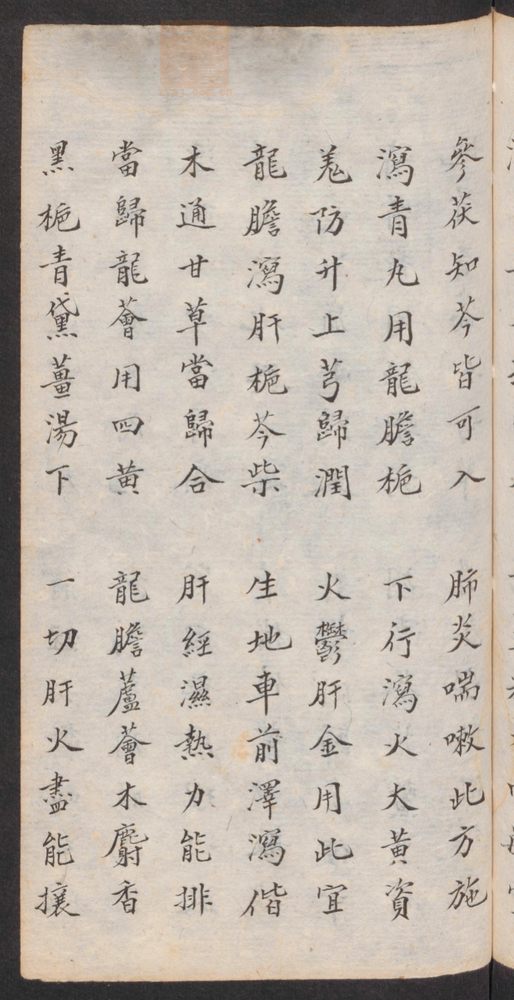 參茯知芩皆可入 肺炎喘嗽此方施
瀉青丸用龍膽梔 下行瀉火大黃資
羗防升上芎歸潤 火鬱肝金用此宜
龍膽瀉肝梔芩柴 生地車前澤瀉偕
木通甘草當歸合 肝經濕熱力能排
當歸龍薈用四黃 龍膽蘆薈木麝香
黑梔青黛薑湯下 一切肝火盡能攘